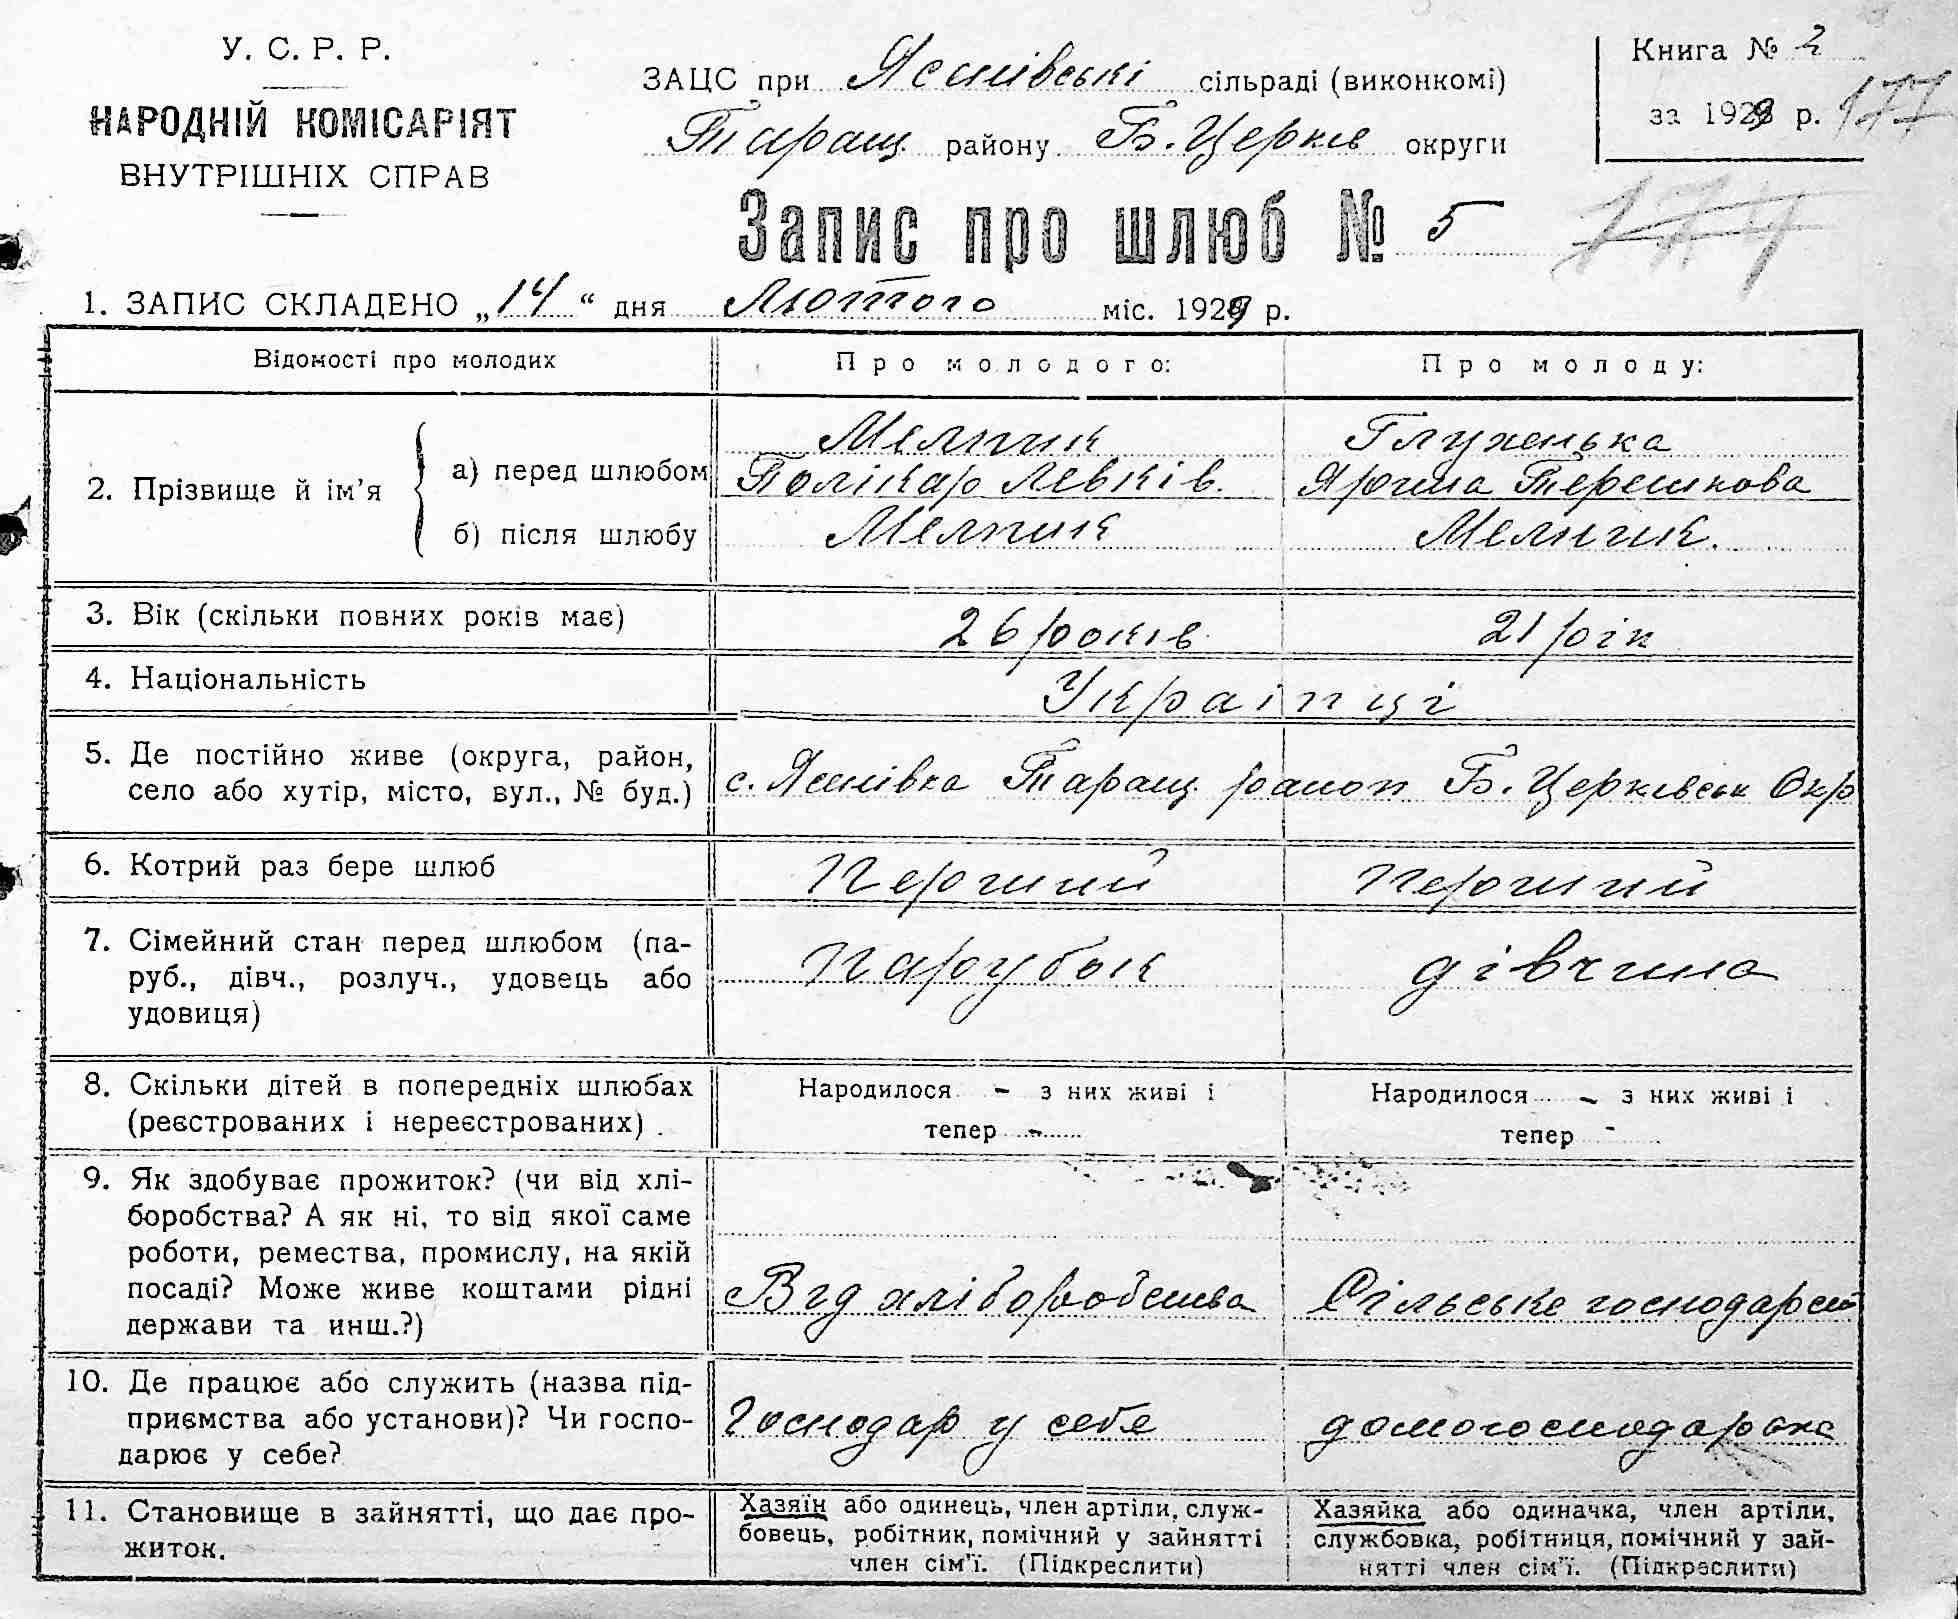 У. С. Р. Р.
НАРОДНІЙ КОМІСАРІЯТ
ВНУТРІШНІХ СПРАВ
ЗАЦС при Ясенівські сільраді (виконкомі)
Таращ. району Б. Церків округи
Книга № 2
за 1929 р. 177
Запис про шлюб № 5
174
1. ЗАПИС СКЛАДЕНО „14“ дня Лютого міс. 1929 р.
Відомості про молодих
Про молодого:
Про молоду:
2. Прізвище й ім’я
а) перед шлюбом
Мельник
Полікар Левків.
Глухенька
Ярина Терешкова
б) після шлюбу
Мельник
Мельник.
3. Вік (скільки повних років має)
26 років
21 рік
4. Національність
Українці
5. Де постійно живе (округа, район,
село або хутір, місто, вул., № буд.)
с. Ясенівка Таращ. район Б. Церківськ Окр
6. Котрий раз бере шлюб
Перший
перший
7. Сімейний стан перед шлюбом (па-
руб., дівч., розлуч., удовець або
удовиця)
Парубок
дівчина
8. Скільки дітей в попередніх шлюбах
(реєстрованих і нереєстрованих) .
Народилося - з них живі і
тепер -
Народилося - з них живі і
тепер -
9. Як здобуває прожиток? (чи від хлі-
боробства? А як ні, то від якої саме
роботи, ремества, промислу, на якій
посаді? Може живе коштами рідні
держави та инш.?)
Від хліборобства
Сільське господарст
10. Де працює або служить (назва під-
приємства або установи)? Чи госпо-
дарює у себе?
Господар у себе
домогосподарка
11. Становище в зайнятті, що дає про-
житок.
Хазяїн або одинець, член артіли, служ-
бовець, робітник, помічний у зайнятті
член сім’ї. (Підкреслити)
Хазяйка або одиначка, член артіли,
службовка, робітниця, помічний у зай-
нятті член сім’ї. (Підкреслити)